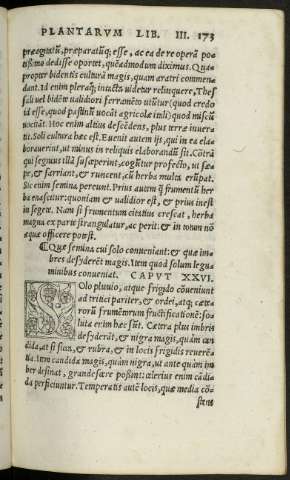 PLANTARVM LIB. III. 173
præcognitũ, præparatũq; esse, ac ea de re operũ po
tißimũ dedisse oportet, quẽadmodum diximus. Qua
propter bidentis cultura magis, quam aratri commen
dant. Id enim pleraq; intacta uidetur relinquere, Thes
sali uel bidẽte ualidiori ferramẽto utũtur (quod credo
id esse, quod pastinũ uocãt agricolæ inli) quod miscũ
uocitãt. Hoc enim altius descẽdens, plus terræ inuer
tit. Soli cultura hæc est. Euenit autem ijs, qui in ea ela
borauerint, ut minus in reliquis elaborandũ sit. Cõtrà
qui segnius illã susceperint, cogũtur profecto, ut sæ
pe, & sarriant, & runcent, cũ herba multa erũpat.
Sic enim semina pereunt. Prius autem q̃ frumentũ her
ba enascitur: quoniam & ualidior est, & prius inest
in segete. Nam si frumentum citatius crescat, herba
magna ex parte strangulatur, ac perit: & in totum nõ
æque officere potest.
¶ Quæ semina cui solo conueniant: & quæ im
bres desyderẽt magis. Item quod solum legu
minibus conueniat. CAPVT XXVI.
SOlo pluuio, atque frigido cõueniunt
ad tritici pariter, & ordei, atq; cæte
rorũ frumẽtorum fructificationẽ: so
luta erim hæc sũt. Cætera plus imbris
desyderãt, & nigra magis, quàm can
dida, at si sicca, & rubra, & in locis frigidis reuerẽ
tia. Item candida magis, quàm nigra, ut ante quàm im
ber desinat, grandescere poßint: celerius enim cãdi
da perficiuntur. Temperatis autẽ locis, quæ media cõ
sistens